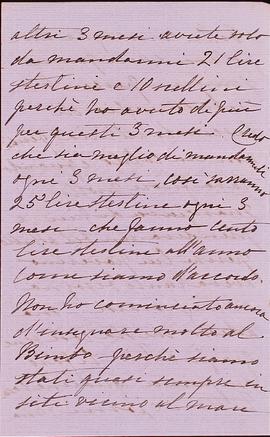 altri 3 mesi avete solo
da mandarmi 21 lire
sterline e 10 scellini
perchè ho avuto di più
per questi 3 mesi. Credo
che sia meglio di mandarmeli
ogni 3 mesi, così saranno
25 lire sterline ogni 3
mesi che fanno cento
lire sterline all'anno
come siamo d'accordo.
Non ho cominciato ancora
d'insegnare molto al
Bimbo perchè siamo
stati quasi sempre in
siti vicino al mare